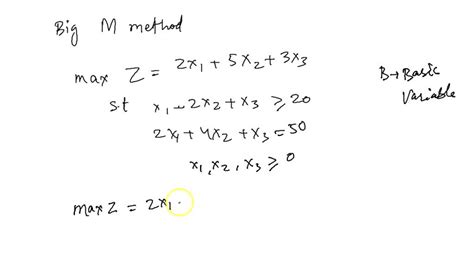 Big M method
max Z = 2x₁ + 5x₂ + 3x₃
s.t x₁ - 2x₂ + x₃ ≥ 20
2x₁ + 4x₂ + x₃ = 50
x₁, x₂, x₃ ≥ 0
B → Basic
Variable
max Z = 2x₁